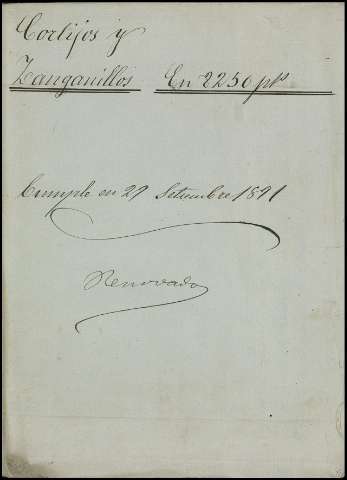 Cortijos y
Zanganillos En 2250 pts
Cumple en 29 Setiembre 1891
Renovado